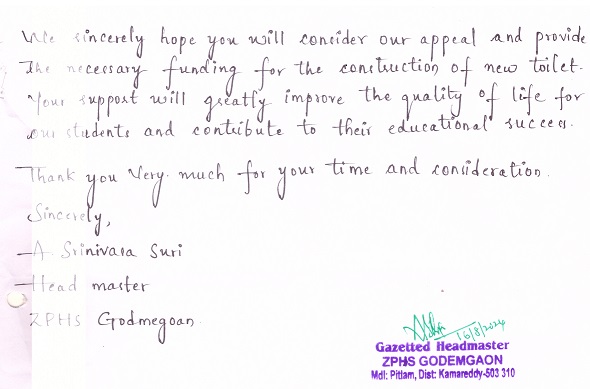 We sincerely hope you will consider our appeal and provide
the necessary funding for the construction of new toilet.
Your support will greatly improve the quality of life for
our students and contribute to their educational success.
Thank you Very much for your time and consideration.
Sincerely,
A. Srinivasa Suri
Head master
ZPHS Godmegoan.
16/8/2024
Gazetted Headmaster
ZPHS GODEMGAON
Mdl: Pitlam, Dist: Kamareddy-503 310